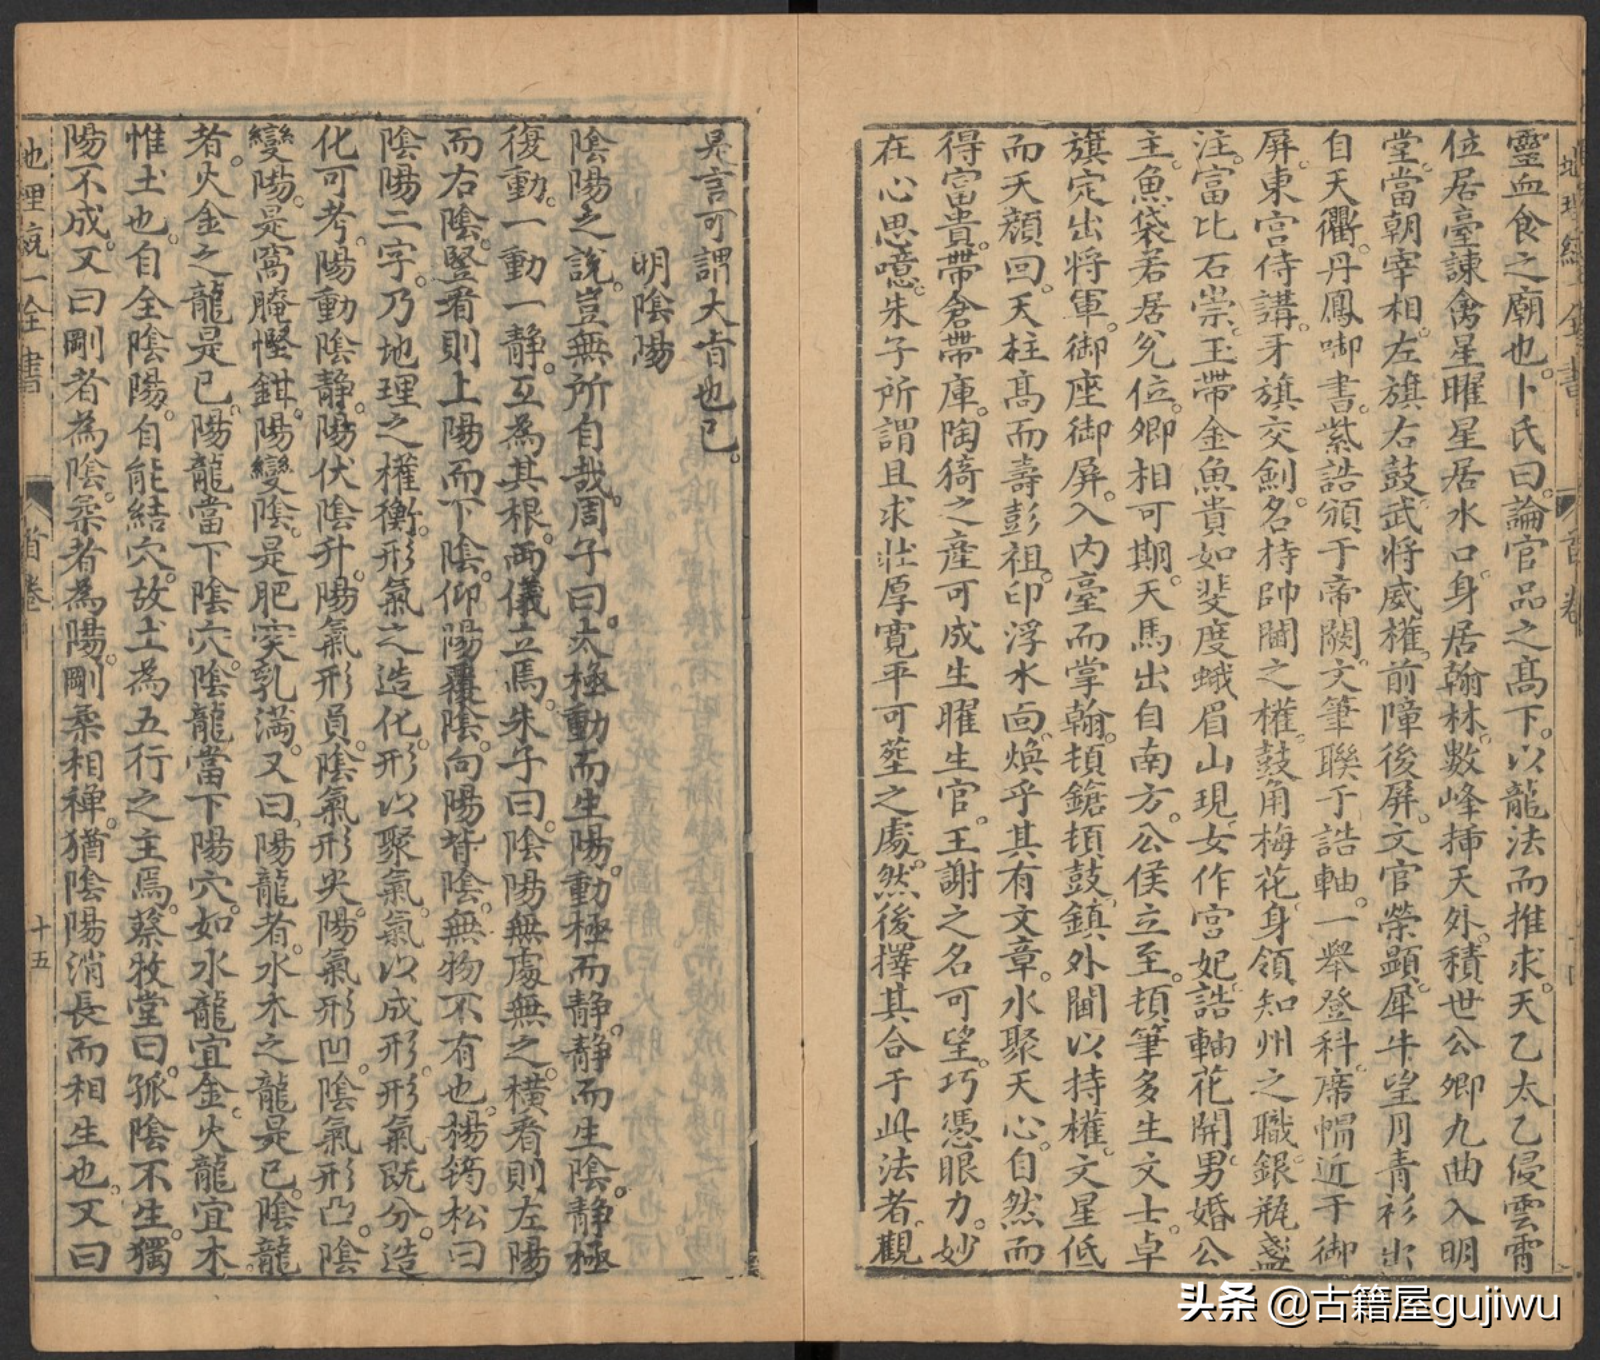 靈血食之廟也。卜氏曰。論官品之高下。以龍法而推求。天乙太乙侵雲霄
位居臺諫。禽星曜星居水口。身居翰林。數峰揷天外。積世公卿。九曲入明
堂。當朝宰相。左旗右鼓。武將威權。前障後屏。文官榮顯。犀牛望月。青衫出
自天衢。丹鳳啣書。紫誥頒于帝闕。文筆聯于誥軸。一舉登科。席帽近于御
屏。東宮侍講。牙旗交劍。名持帥閫之權。鼓角梅花。身領知州之職。銀瓶盞
注。富比石崇。玉帶金魚。貴如斐度。蛾眉山現。女作宮妃。誥軸花開。男婚公
主。魚袋若居兊位。卿相可期。天馬出自南方。公侯立至。頓筆多生文士。卓
旗定出將軍。御座御屏。入內臺而掌翰。頓鎗頓鼓。鎮外閫以持權。文星低
而夭顏回。天柱高而壽彭祖。印浮水面。煥乎其有文章。水聚天心。自然而
得富貴。帶倉帶庫。陶猗之產可成。生曜生官。王謝之名可望。巧憑眼力。妙
在心思。噫。朱子所謂且求壯厚寬平可塟之處。然後擇其合于此法者。觀
是言可謂大旨也已。
明陰陽
陰陽之說。豈無所自哉。周子曰。太極動而生陽。動極而静。静而生陰。静極
復動。一動一静。互為其根。兩儀立焉。朱子曰。陰陽無處無之。橫看則左陽
而右陰。竪看則上陽而下陰。仰陽覆陰。向陽背陰。無物不有也。楊筠松曰
陰陽二字。乃地理之權衡。形氣之造化。形以聚氣。氣以成形。形氣既分。造
化可考。陽動陰静。陽伏陰升。陽氣形員。陰氣形尖。陽氣形凹。陰氣形凸。陰
變陽。是窩腌慳鉗。陽變陰。是肥突乳滿。又曰。陽龍者。水木之龍是已。陰龍
者。火金之龍是已。陽龍當下陰穴。陰龍當下陽穴。如水龍宜金。火龍宜木
惟土也。自全陰陽。自能結穴。故土為五行之主焉。蔡牧堂曰。孤陰不生。獨
陽不成。又曰剛者為陰。柔者為陽。剛柔相禪。猶陰陽消長而相生也。又曰
地理統一全書
首卷
十五